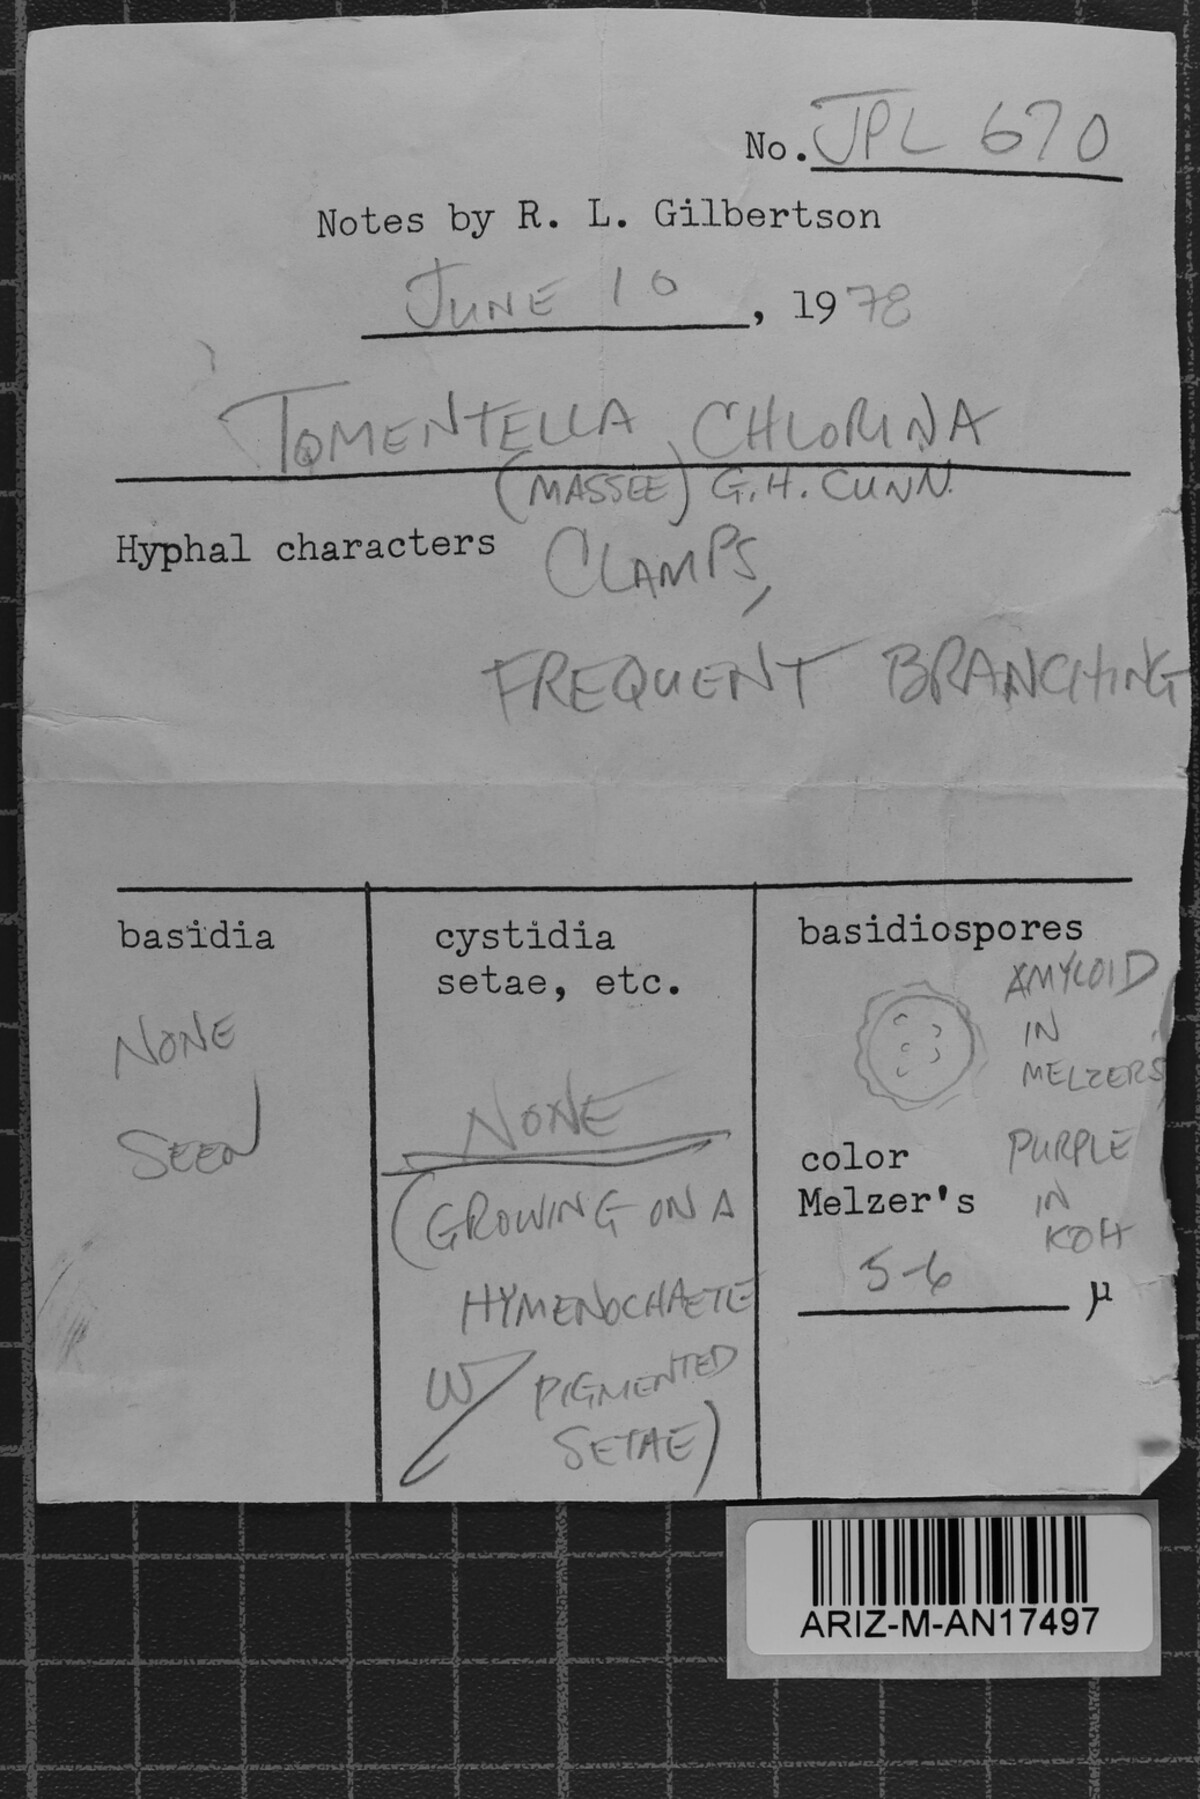 No. JPL 670
Notes by R. L. Gilbertson
JUNE 10, 1978
TOMENTELLA CHLORINA
(MASSEE) G.H. CUNN.
Hyphal characters CLAMPS,
FREQUENT BRANCHING
basidia
NONE
SEEN
cystidia
setae, etc.
NONE
(GROWING ON A
HYMENOCHAETE
W/ PIGMENTED
SETAE)
basidiospores
AMYLOID
IN
MELZERS
color
Melzer's
PURPLE
IN
KOH
5-6 µ
ARIZ-M-AN17497